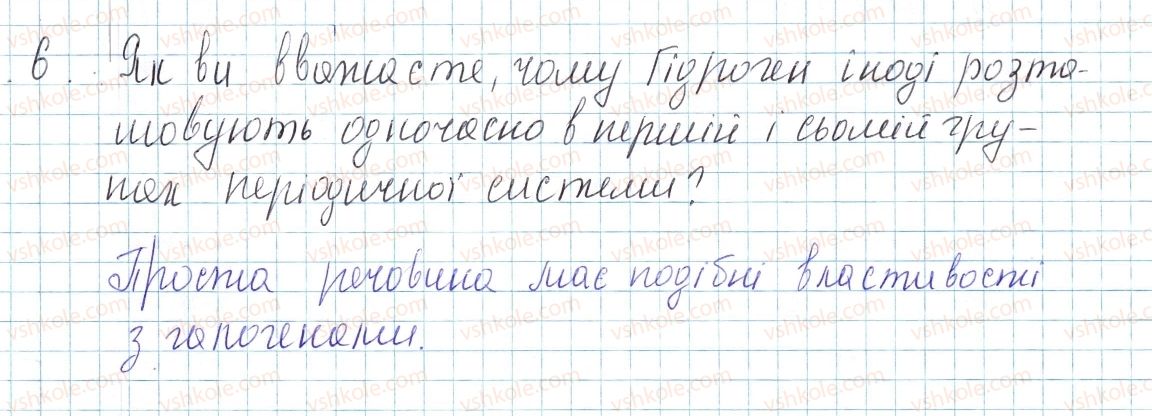 6. Як ви вважаєте, чому Гідроген іноді розта-
шовують одночасно в першій і сьомій гру-
пах періодичної системи?
Проста речовина має подібні властивості
з галогенами.